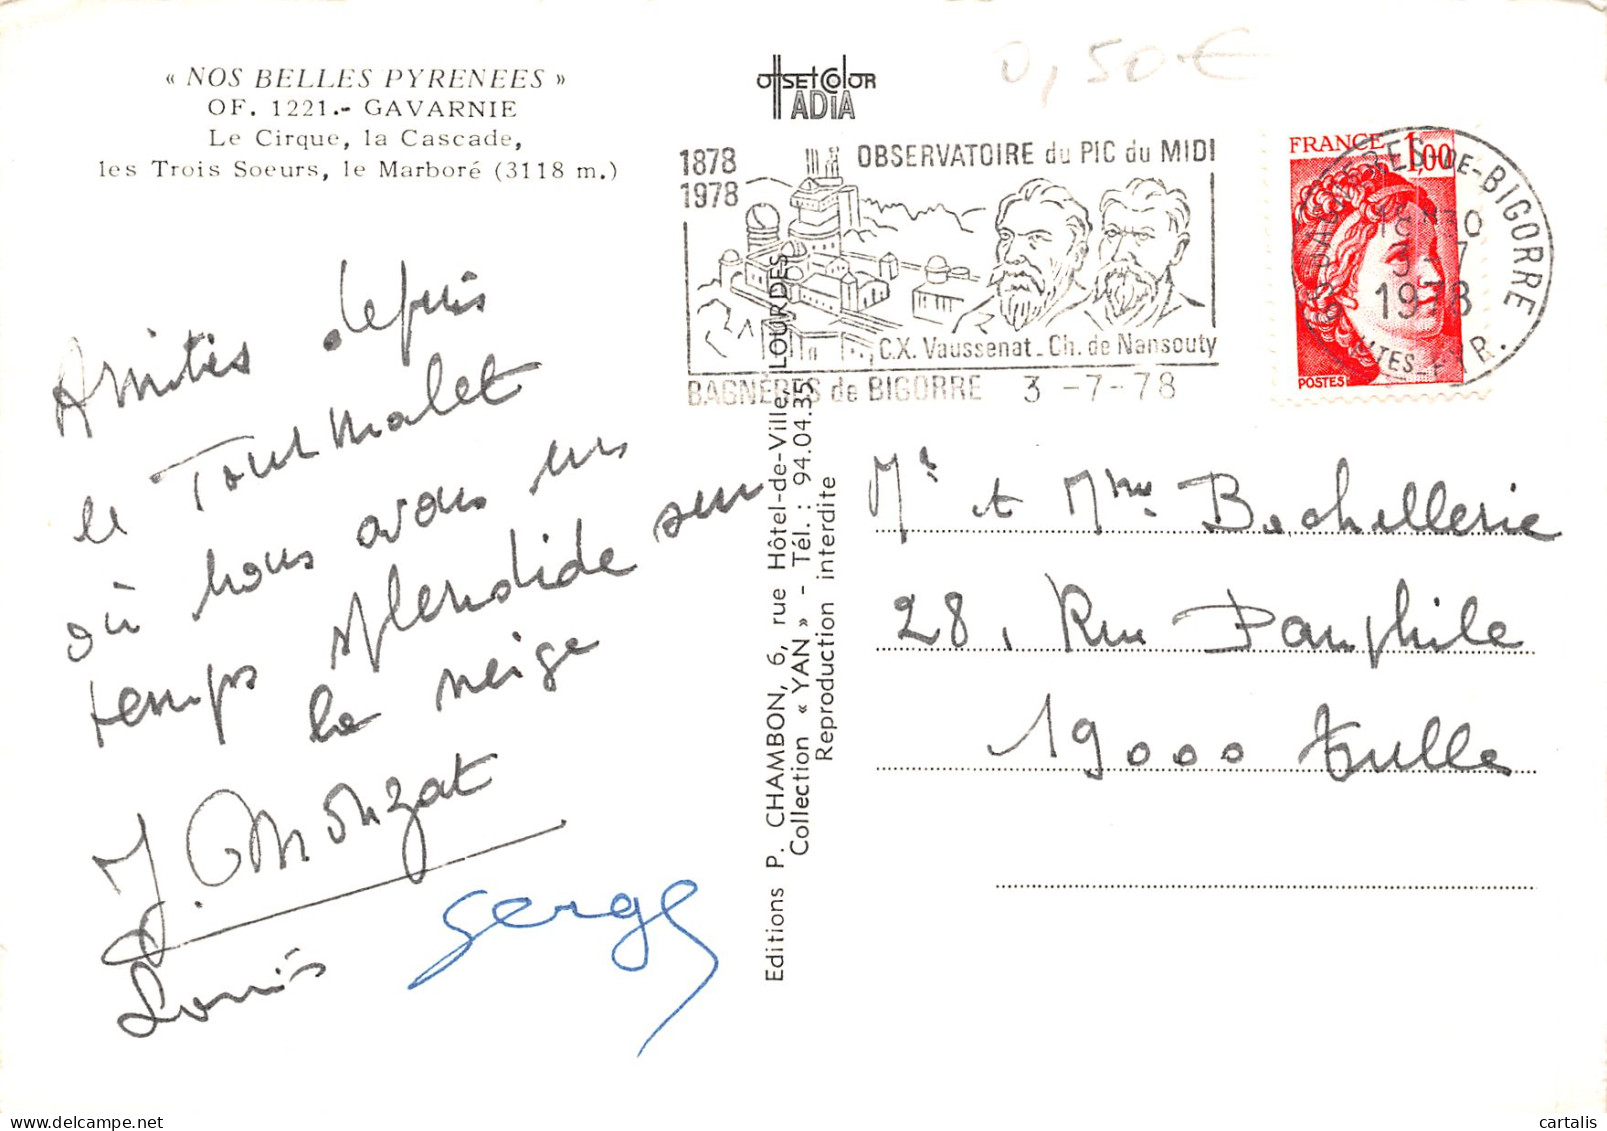 « NOS BELLES PYRENEES »
OF. 1221.- GAVARNIE
Le Cirque, la Cascade,
les Trois Soeurs, le Marboré (3118 m.)
offset color
ADIA
0,50€
1878
1978
OBSERVATOIRE du PIC du MIDI
C.X. Vaussenat_Ch. de Nansouty
BAGNÈRES de BIGORRE 3 -7-78
FRANCE 1,00
POSTES
BAGNERES-DE-BIGORRE
3-7
1978
HTES-PYR.
Amitiés depuis
le Tourmalet
où nous avons eu
temps splendide sur
la neige
J. Monzat
Louis
Serge
Editions P. CHAMBON, 6, rue Hôtel-de-Ville, LOURDES
Collection « YAN » - Tél. : 94.04.35
Reproduction interdite
Mr et Mme Bachellerie
28, Rue Pamphile
19000 Tulle
cartalis